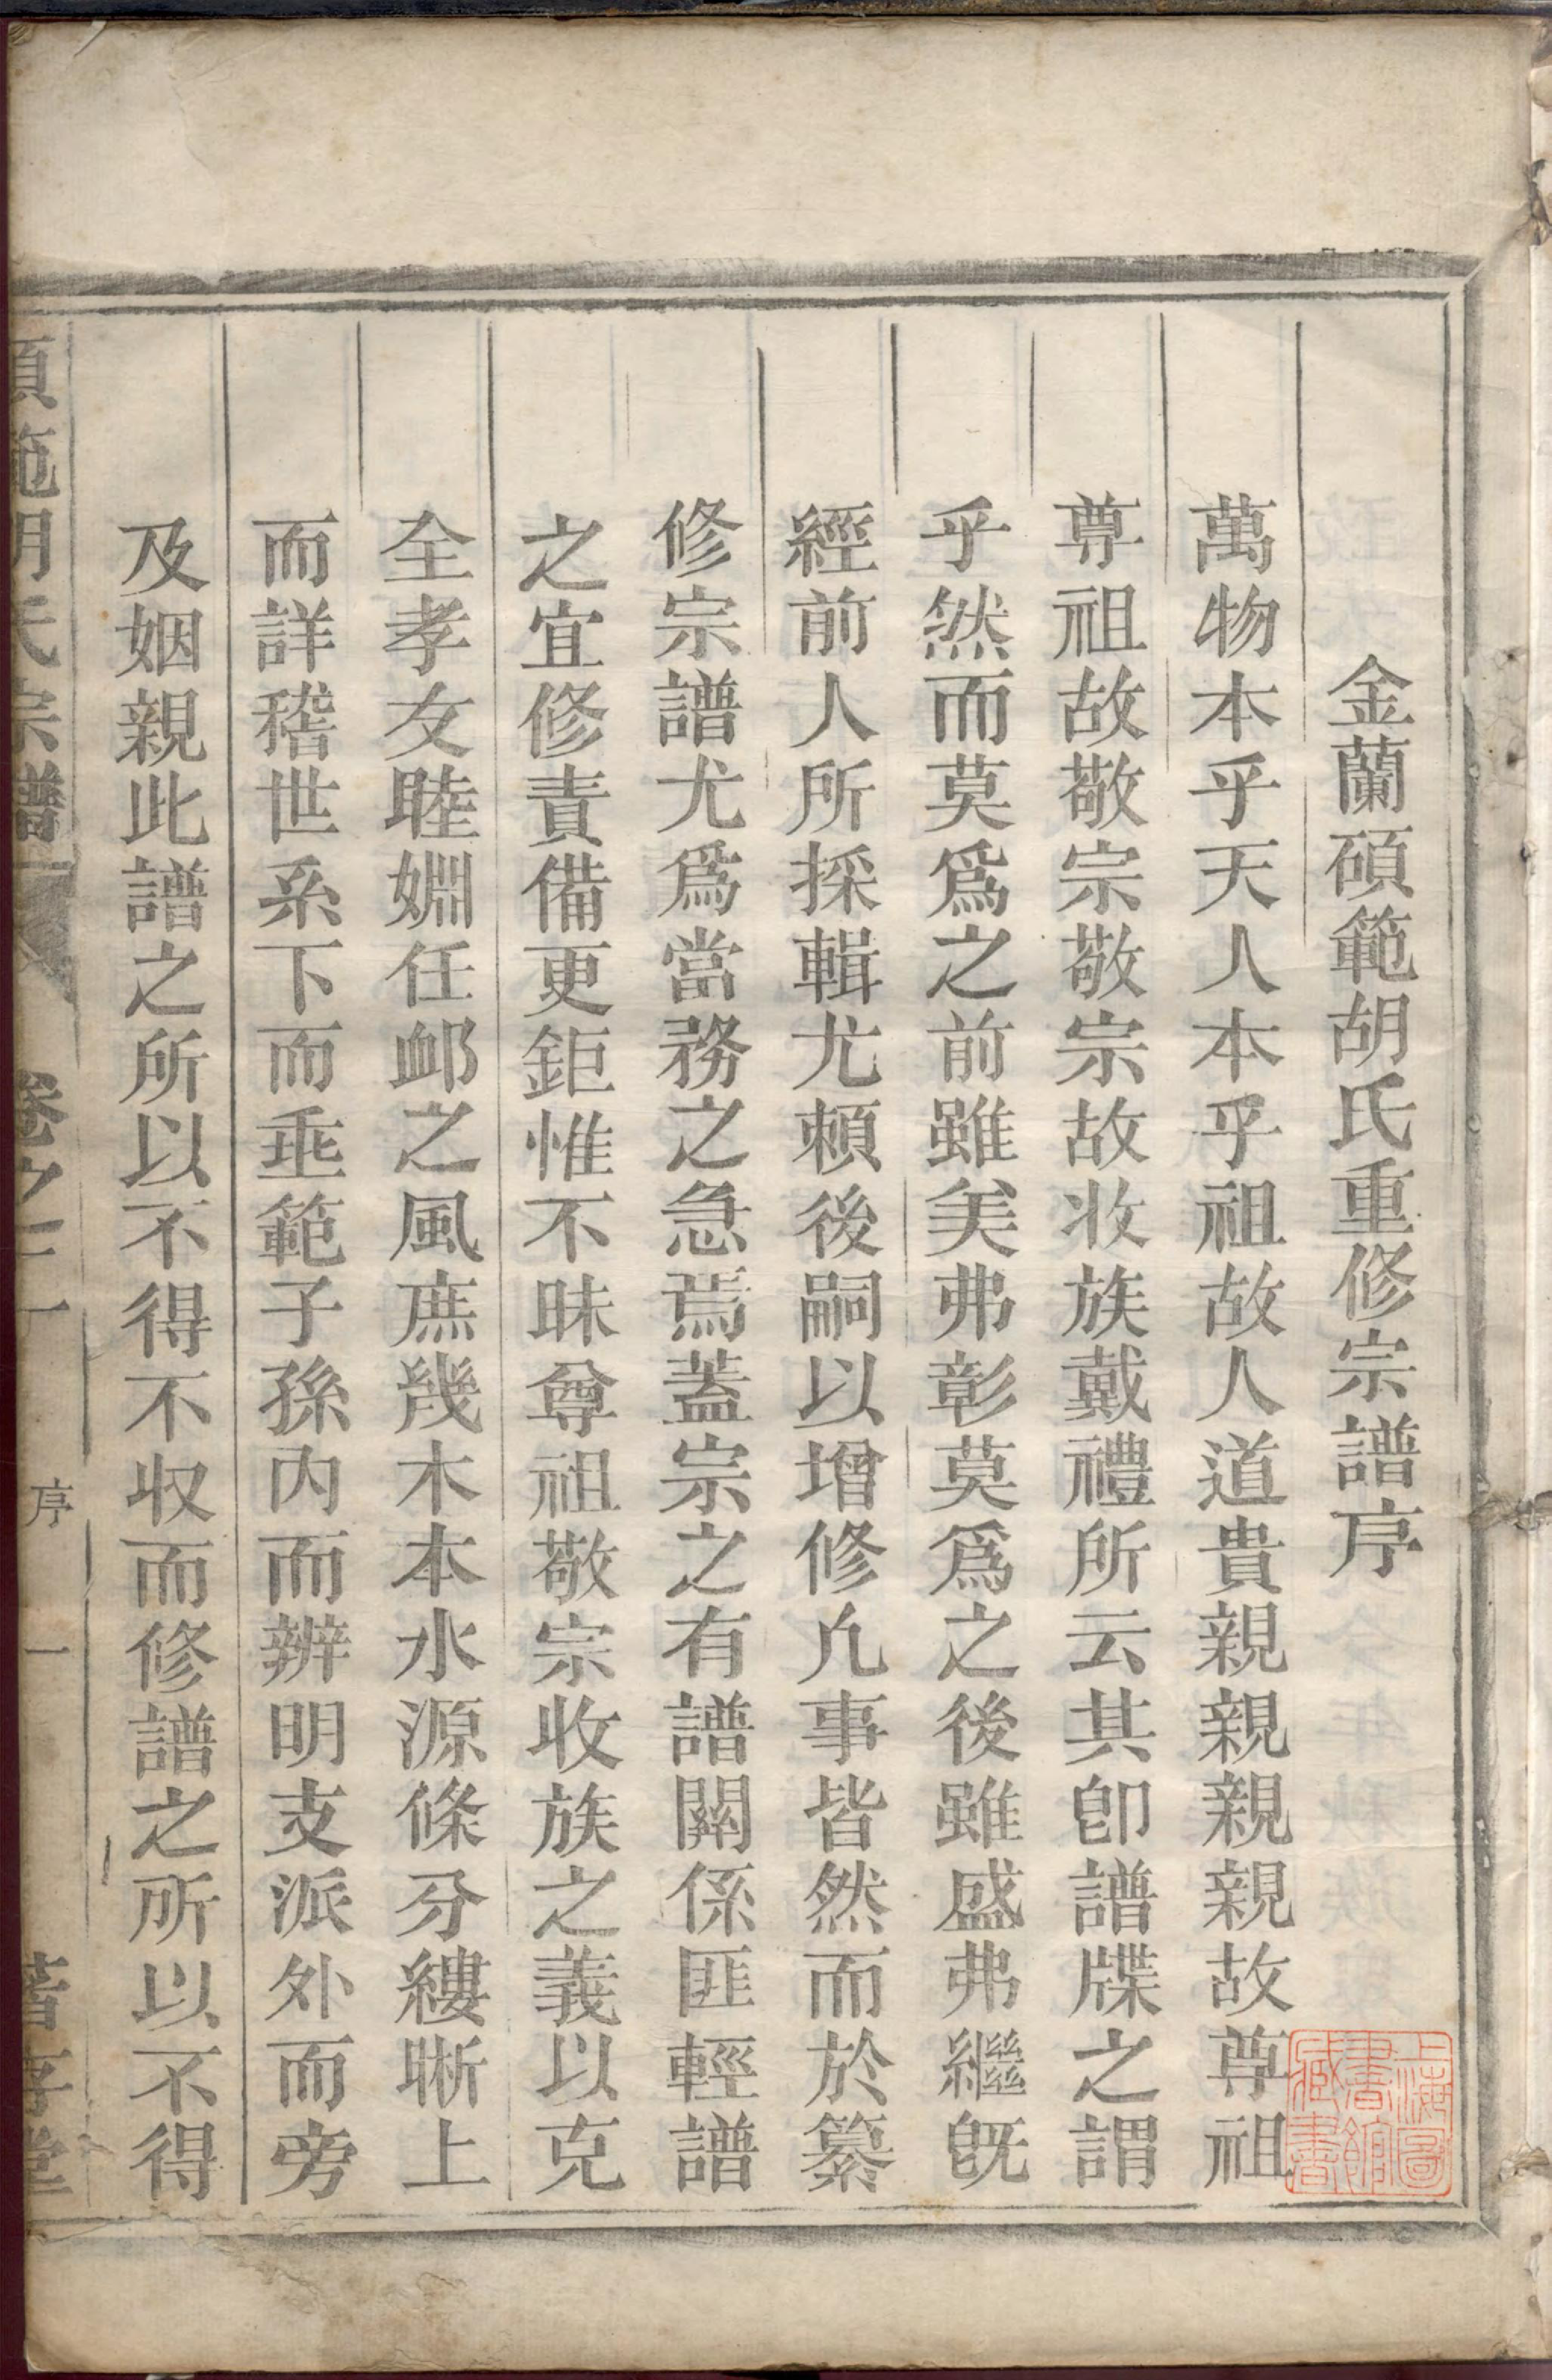 金蘭碩範胡氏重修宗譜序
萬物本乎天人本乎祖故人道貴親親親親故尊祖
尊祖故敬宗敬宗故收族戴禮所云其卽譜牒之謂
乎然而莫爲之前雖美弗彰莫爲之後雖盛弗繼旣
經前人所採輯尤賴後嗣以增修凡事皆然而於纂
修宗譜尤爲當務之急焉蓋宗之有譜關係匪輕譜
之宜修責備更鉅惟不昧尊祖敬宗收族之義以克
全孝友睦婣任衈之風庶幾木本水源條分縷晰上
而詳稽世系下而垂範子孫內而辨明支派外而旁
及姻親此譜之所以不得不收而修譜之所以不得
碩範胡氏宗譜
卷之一
序
一
上海圖書館藏書